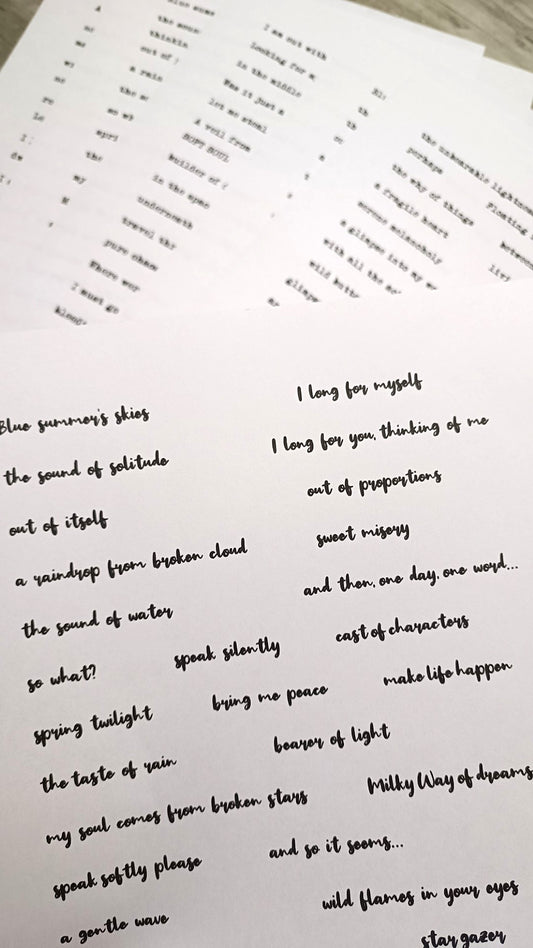 the unbearable lightness
perhaps
the why of things
a fragile heart
serene melancholy
a glimpse into my
with all the
wild
I am out with
looking for
in the middle
Was it just a
let me steal
A veil from
SOFT SOUL
builder of
in the open
underneath
travel
pure
I must go
Floating
between
out of
a rain
the
my
Blue summer's skies
the sound of solitude
out of itself
a raindrop from broken cloud
the sound of water
so what?
speak silently
spring twilight
bring me peace
the taste of rain
bearer of light
my soul comes from broken stars
speak softly please
a gentle wave
I long for myself
I long for you, thinking of me
out of proportions
sweet misery
and then, one day, one word...
cast of characters
make life happen
Milky Way of dreams
and so it seems...
wild flames in your eyes
star gazer